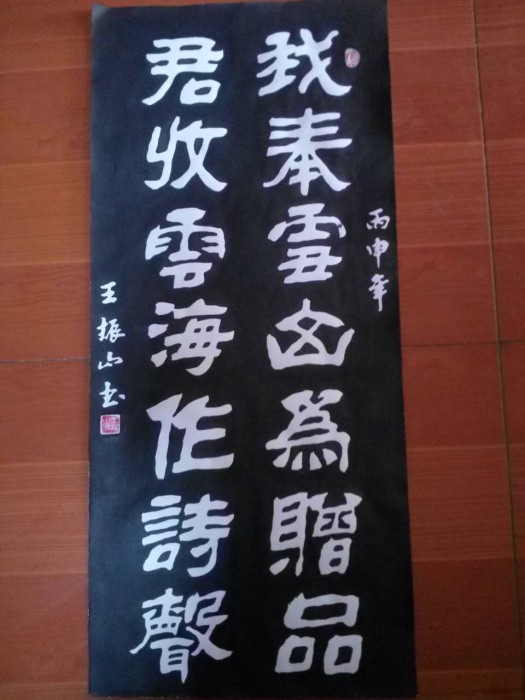 丙申年
我奉雪山為贈品
君收雲海作詩聲
王振山书